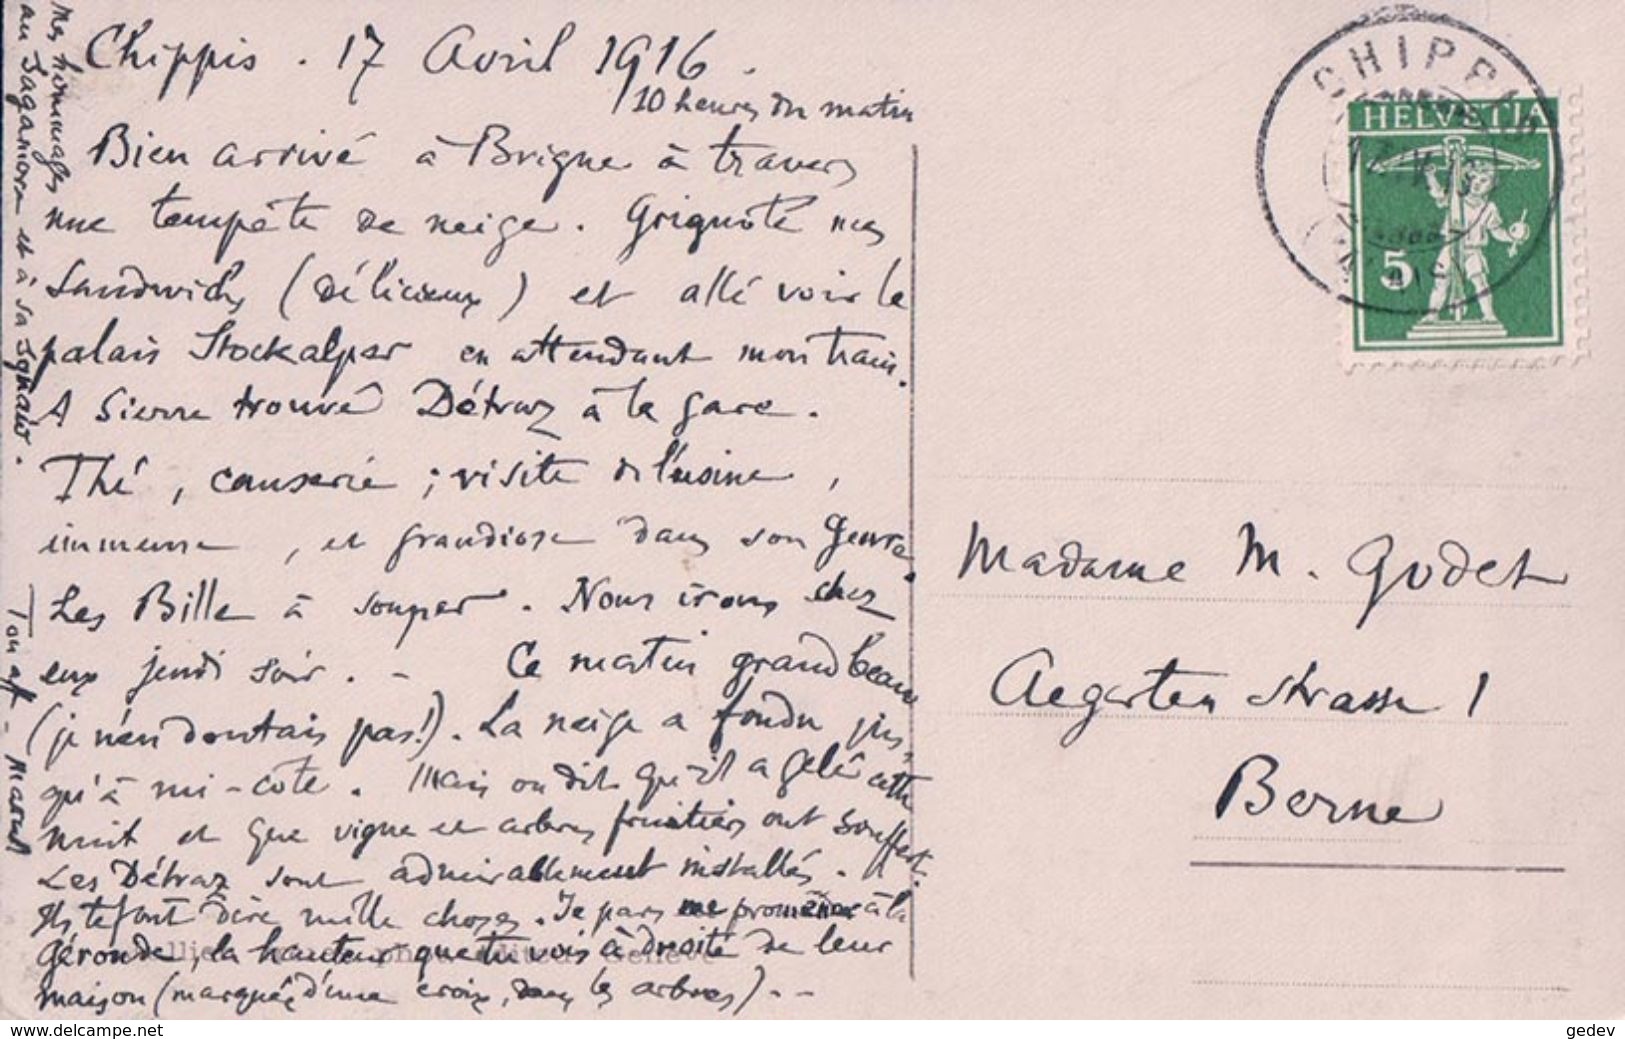 Chippis . 17 Avril 1916 .
10 heures du matin
Bien arrivé à Brigue à travers
une tempête de neige . Grignoté mes
sandwichs (délicieux) et allé voir le
palais Stockalper en attendant mon train.
A Sierre trouvé Détraz à la gare .
Thé , causerie ; visite de l'usine ,
immense , et grandiose dans son genre.
Les Bille à souper . Nous irons chez
eux jeudi soir . - Ce matin grand beau
(je n'en doutais pas!) . La neige a fondu jus-
qu'à mi-côte . Mais on dit qu'il a gelé cette
nuit et que vigne et arbres fruitiers ont souffert.
Les Détraz sont admirablement installés .
Ils te font dire mille choses . Je pars me promener à la
Géronde, la hauteur que tu vois à droite de leur
maison (marquée d'une croix, dans les arbres) . - -
Mes hommages
au Sagamore et à sa squaw .
Ton aff - Marcel
CHIPPIS
HELVETIA
5
Madame M. Godet
Aegerten strasse 1
Berne
www.delcampe.net
gedev